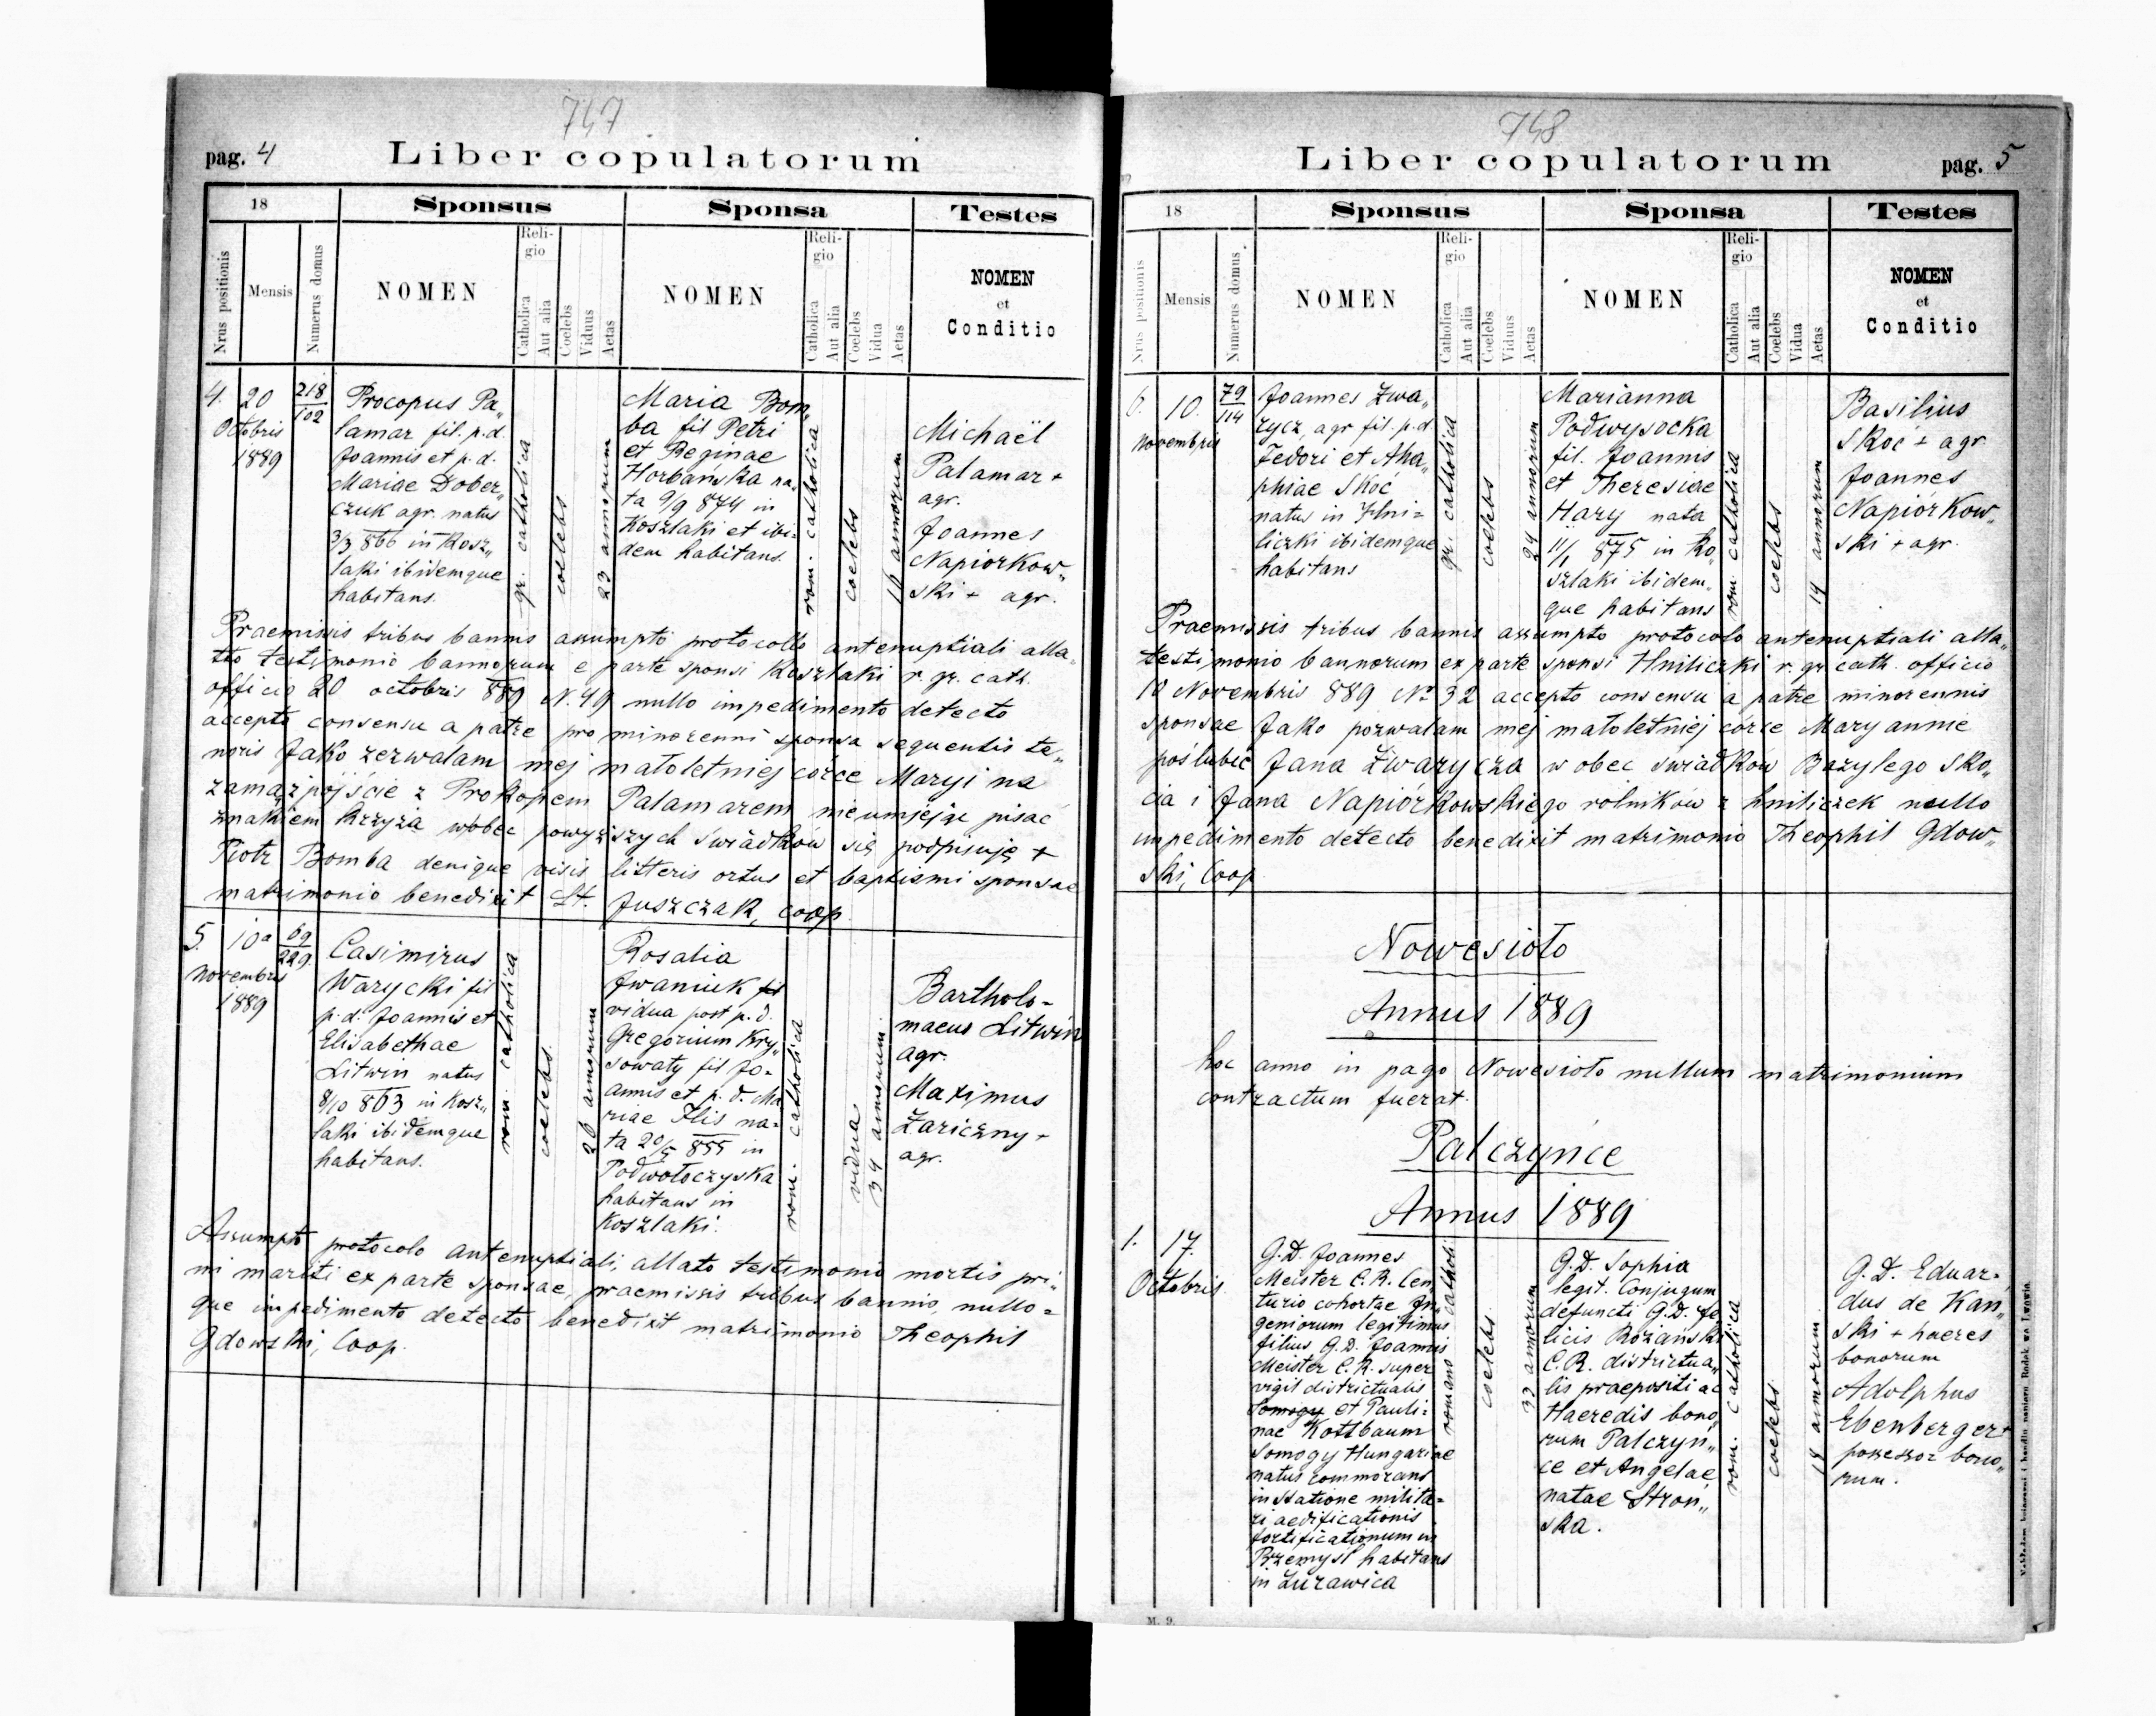 747
pag. 4
Liber copulatorum
18
Sponsus
Sponsa
Testes
Nrus positionis
Mensis
Numerus domus
NOMEN
Reli-
gio
Catholica
Aut alia
Coelebs
Viduus
Aetas
NOMEN
Reli-
gio
Catholica
Aut alia
Coelebs
Vidua
Aetas
NOMEN
et
Conditio
4.
20
Octobris
1889
218
102
Procopus Pa„
lamar fil. p.d.
Joannis et p.d.
Mariae Dober„
czuk agr. natus
3/3 866 in Kosz„
laki ibidemque
habitans.
gr. catholica
coelebs
23 annorum
Maria Bom„
ba fil Petri
et Reginae
Horbańska na„
ta 9/9 874 in
Koszlaki et ibi=
dem habitans.
rom. catholica
coelebs
annorum
Michaël
Palamar +
agr.
Joannes
Napiorkow„
ski + agr.
Praemissis tribus bannis assumpto protocollo antenuptiali alla„
tto testimonio bannorum e parte sponsi Koszlaki r. gr. cath.
officio 20 octobris 889 N. 49 nullo impedimento detecto
accepto consensu a patre pro minorenni sponsa sequentis te„
noris Jako zezwalam mej małoletniej córce Maryi na
zamążpójście z Prokopem Palamarem nieumiejąc pisać
znakiem krzyża wobec powyższych świadków się podpisuję +
Piotr Bomba denique visis litteris ortus et baptismi sponsae
matrimonio benedixit St. Juszczak, coop.
5.
10a
Novembris
1889
69
229
Casimirus
Warycki fil
p.d. Joannis et
Elisabethae
Litwin natus
8/10 863 in Kosz„
laki ibidemque
habitans.
rom. catholica
coelebs.
26 annorum
Rosalia
Iwaniuk fil
vidua post p.d.
Gregorium Kry„
sowaty fil Jo=
annis et p.d. Ma
riae Ilis na=
ta 20/5 855 in
Podwołoczyska
habitans in
Koszlaki.
rom. catholica
vidua
34 annorum.
Bartholo-
maeus Litwin
agr.
Maximus
Zariczny +
agr.
Assumpto protocolo antenuptiali, allato testimonio mortis pri„
mi mariti ex parte sponsae, praemissis tribus bannis, nullo=
que impedimento detecto benedixit matrimonio Theophil
Gdowski, Coop.
748
Liber copulatorum
pag. 5
18
Sponsus
Sponsa
Testes
Nrus positionis
Mensis
Numerus domus
NOMEN
Reli-
gio
Catholica
Aut alia
Coelebs
Viduus
Aetas
NOMEN
Reli-
gio
Catholica
Aut alia
Coelebs
Vidua
Aetas
NOMEN
et
Conditio
6.
10.
Novembris
79
114
Joannes Zwa„
rycz, agr fil. p.d.
Fedori et Aha„
phiae Skoć
natus in Hni=
liczki ibidemque
habitans
gr. catholica
coelebs
24 annorum
Marianna
Podwysocka
fil. Joannis
et Theresiae
Hary nata
11/1 875 in Ko„
szlaki ibidem„
que habitans
rom catholica
coelebs
14 annorum
Basilius
Skoć + agr.
Joannes
Napiórkow„
ski + agr.
Praemissis tribus bannis assumpto protocolo antenuptiali alla„
testimonio bannorum ex parte sponsi Hniliczki r. gr. cath. officio
10 Novembris 889 No 32 accepto consensu a patre minorennis
sponsae Jako pozwalam mej małoletniej córce Maryannie
poślubić Jana Żwarycza w obec świadków Bazylego Sko„
cia i Jana Napiórkowskiego rolników z Hniliczek nullo
impedimento detecto benedixit matrimonio Theophil Gdow„
ski, Coop
Nowesioło
Annus 1889
hoc anno in pago Nowesioło nullum matrimonium
contractum fuerat.
Palczyńce
Annus 1889
1.
17.
Octobris
G.D. Joannes
Meister C.R. Cen„
turio cohortae In„
geniorum legitimus
filius G.D. Joannis
Meister C.R. super
vigil districtualis
Somogy et Pauli=
nae Kottbaum
Somogy Hungariae
natus commorans
in statione milita=
ri aedificationis
fortificationum in
Przemyśl habitans
in Żurawica
romano catholi
coelebs.
33 annorum
G.D. Sophia
legit. Conjugum
defuncti G.D. Fe„
licis Rożański
C.R. districtua„
lis praepositi ac
Haeredis bono„
rum Palczyń„
ce et Angelae
natae Stroń„
ska.
rom. catholica
coelebs.
annorum
G.D. Eduar=
dus de Kań„
ski + haeres
bonorum
Adolphus
Ebenberger +
possessor bono„
rum.
M. 9.